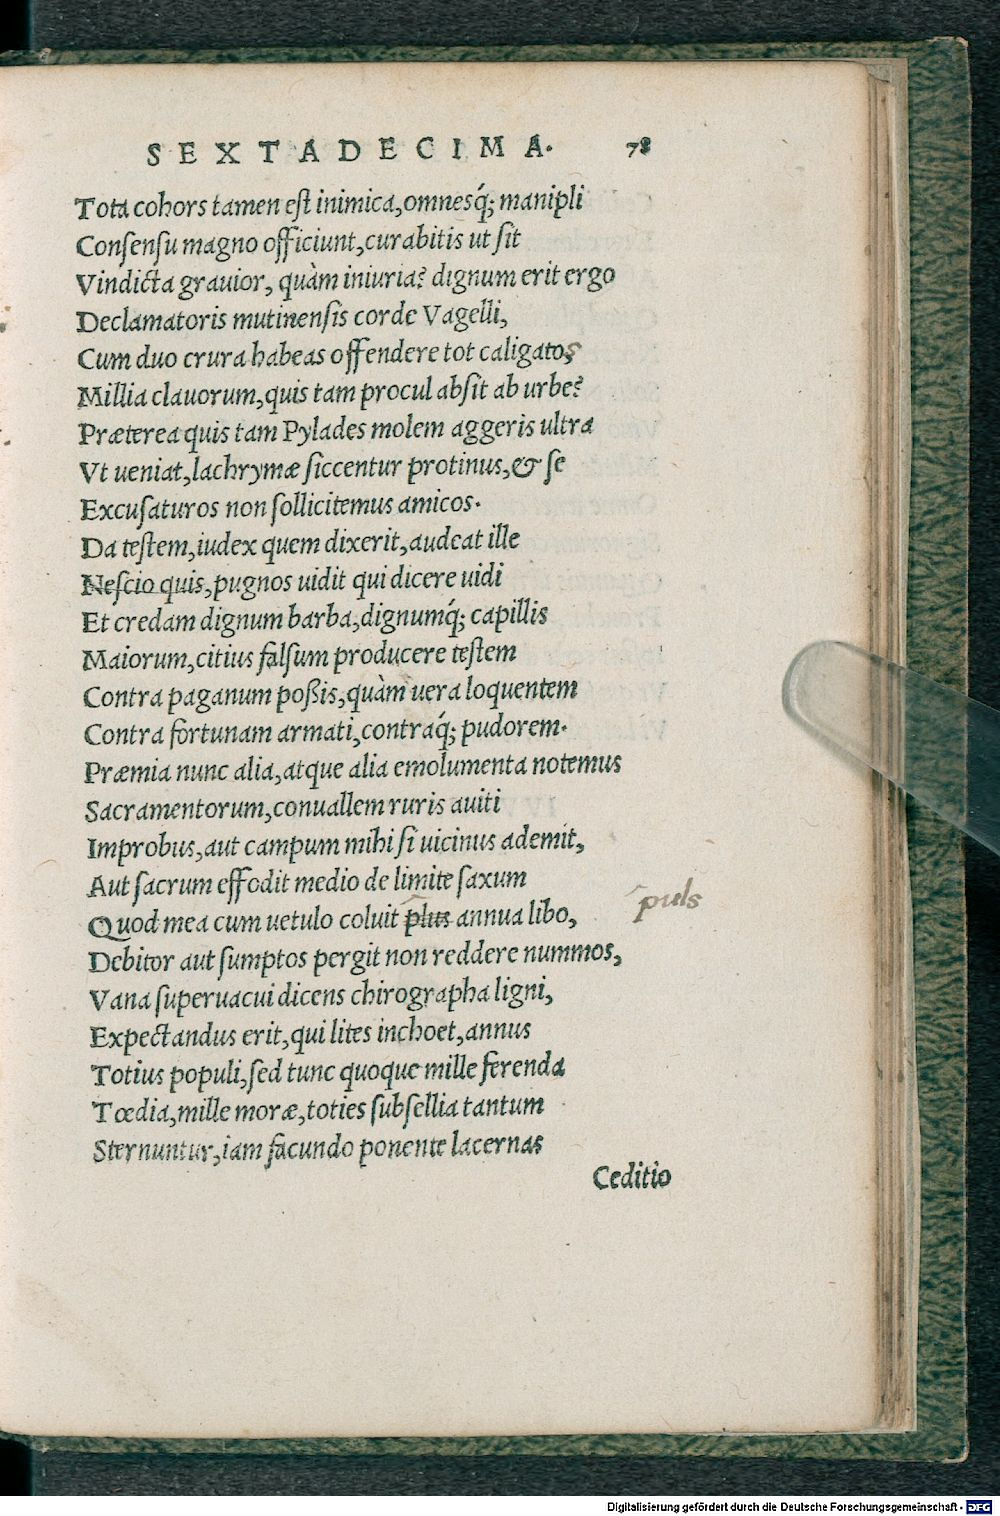 SEXTADECIMA. 78
Tota cohors tamen eſt inimica,omnesq́; manipli
Conſenſu magno officiunt,curabitis ut ſit
Vindicta grauior, quàm iniuria? dignum erit ergo
Declamatoris mutinenſis corde Vagelli,
Cum duo crura habeas offendere tot caligatos
Millia clauorum,quis tam procul abſit ab urbe?
Præterea quis tam Pylades molem aggeris ultra
Vt ueniat,lachrymæ ſiccentur protinus,& ſe
Excuſaturos non ſollicitemus amicos.
Da teſtem,iudex quem dixerit,audeat ille
Neſcio quis,pugnos uidit qui dicere uidi
Et credam dignum barba,dignumq́; capillis
Maiorum,citius falſum producere teſtem
Contra paganum poßis,quàm uera loquentem
Contra fortunam armati,contraq́; pudorem.
Præmia nunc alia,atque alia emolumenta notemus
Sacramentorum,conuallem ruris auiti
Improbus,aut campum mihi ſi uicinus ademit,
Aut ſacrum effodit medio de limite ſaxum
puls
Quod mea cum uetulo coluit plus annua libo,
Debitor aut ſumptos pergit non reddere nummos,
Vana ſuperuacui dicens chirographa ligni,
Expectandus erit,qui lites inchoet,annus
Totius populi,ſed tunc quoque mille ferenda
Tœdia,mille moræ,toties ſubſellia tantum
Sternuntur,iam facundo ponente lacernas
Ceditio
Digitalisierung gefördert durch die Deutsche Forschungsgemeinschaft - DFG